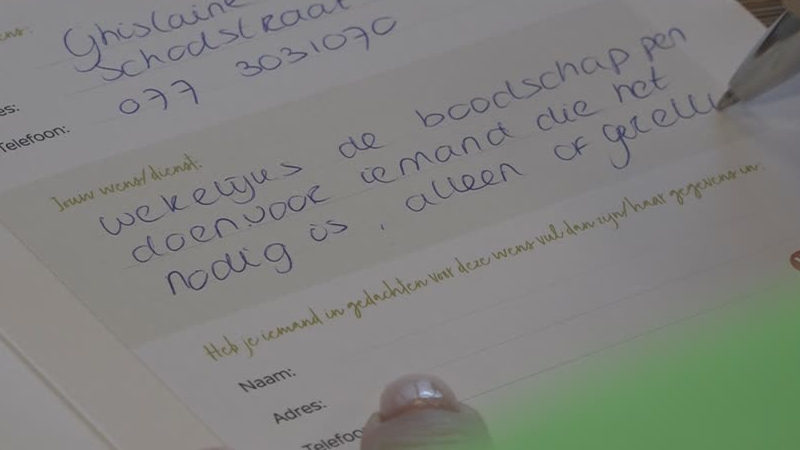 Ghislaine
Schoolstraat
077 3031070
Telefoon:
Jouw wens/dienst:
wekelijks de boodschappen
doen voor iemand die het
nodig is, alleen of gezelli
Heb je iemand in gedachten voor deze wens vul dan zijn/haar gegevens in:
Naam:
Adres:
Telefoo